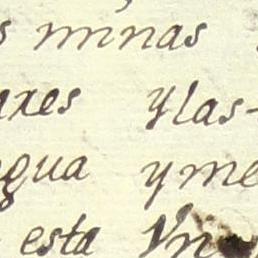 s minas
axes ylas-
gua yme
esta Vn